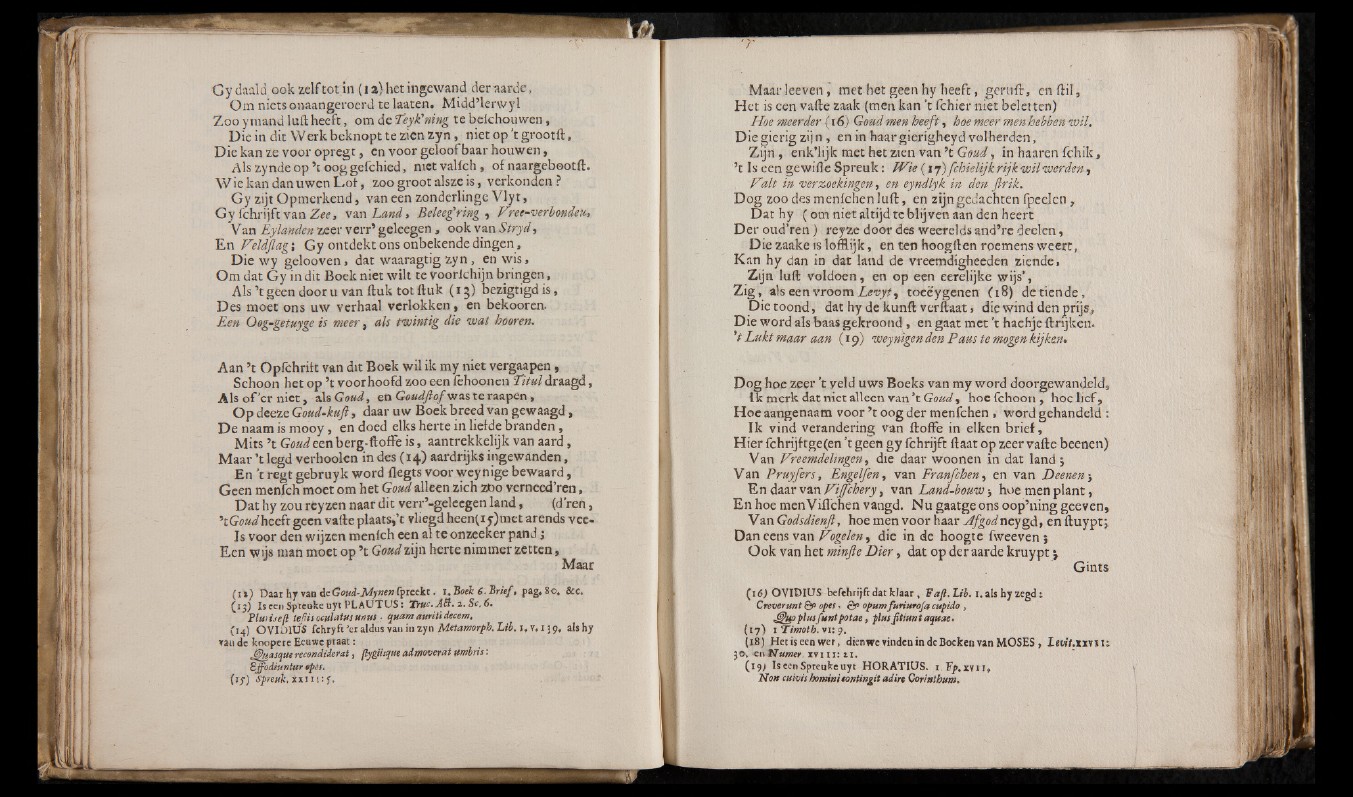 Gy daald ook zelf tot in (12) het ingewand der aarde,
Om niets onaangeroerd te laaten. Midd'lerwyl
Zoo ymand lust heeft, om de Teyk'ning te beschouwen,
Die in dit Werk beknopt te zien zyn, niet op 't grootst,
Die kan ze voor opregt, en voor geloofbaar houwen,
Als zynde op 't oog geschied, niet valsch, of naargebootst.
Wie kan dan uwen Lof, zoo groot als ze is, verkonden?
Gy zijt Opmerkend, van een zonderlinge Vlyt,
Gy schrijft van Zee, van Land, Beleeg'ring, Vree-verbonden,
Van Eylanden zeer verr' geleegen, ook van Stryd,
En Veldslag; Gy ontdekt ons onbekende dingen,
Die wy gelooven, dat waaragtig zyn, en wis,
Om dat Gy in dit Boek niet wilt te voorschijn bringen,
Als 't geen door u van stuk tot stuk (13) bezigtigd is,
Des moet ons uw verhaal verlokken, en bekooren.
Een Oog-getuyge is meer, als twintig die wat hooren.
Aan 't Opschrift van dit Boek wil ik my niet vergaapen,
Schoon het op 't voorhoofd zoo een schoonen Titul draagd,
Als of 'er niet, als Goud, en Goudstof was te raapen,
Op deeze Goud-kust, daar uw Boek breed van gewaagd,
De naam is mooy, en doed elks herte in liefde branden,
Mits 't Goud een berg-stoffe is, aantrekkelijk van aard,
Maar 't legd verhoolen in des (14) aardrijks ingewanden,
En 't regt gebruyk word slegts voor weynige bewaard,
Geen mensch moet om het Goud alleen zich zoo verneed'ren,
Dat hy zou reyzen naar dit verr'-geleegen land, (d'ren,
't Goud heeft geen vaste plaats, 't vliegd heen (15) met arends vee-
Is voor den wijzen mensch een al te onzeeker pand;
Een wijs man moet op 't Goud zijn herte nimmer zetten,
Maar
(12) Daar hy van de Goud-Mynen spreekt. 1. Boek 6. Brief, pag. 80. &c.
(13) Is een Spreuke uyt PLAUTUS: Truc. Act. 2. Sc. 6.
Pluris est testis oculatus unus, quam auriti decem.
(14) OVIDIUS schryft 'er aldus van in zyn Metamorph. Lib. 1. v. 139. als hy
van de koopere Eeuwe praat:
Quasque recondiderat, stygiisque admoverat umbris:
Effodiuntur opes.
(15) Spreuk. XXIII: 5.
Maar leeven, met het geen hy heeft, gerust, en stil,
Het is een vaste zaak (men kan 't schier niet beletten)
Hoe meerder (16) Goud men heeft, hoe meer men hebben wil.
Die gierig zijn, en in haar gierigheyd volherden,
Zijn, enk'lijk met het zien van 't Goud, in haaren schik,
't Is een gewisse Spreuk: Wie (17) schielijk rijk wil werden,
Valt in verzoekingen, en eyndlyk in den strik.
Dog zoo des menschen lust, en zijn gedachten speelen,
Dat hy (om niet altijd te blijven aan den heert
Der oud'ren) reyze door des weerelds and're deelen,
Die zaake is lofflijk, en ten hoogsten roemens weert,
Kan hy dan in dat land de vreemdigheeden ziende,
Zijn lust voldoen, en op een eerelijke wijs',
Zig, als een vroom Levyt, toeëygenen (18) de tiende,
Die toond, dat hy de kunst verstaat, die wind den prijs,
Die word als baas gekroond, en gaat met 't hachje strijken.
't Lukt maar aan (19) weynigen den Paus te mogen kijken.
Dog hoe zeer 't veld uws Boeks van my word doorgewandeld,
Ik merk dat niet alleen van 't Goud, hoe schoon, hoe lief,
Hoe aangenaam voor 't oog der menschen, word gehandeld:
Ik vind verandering van stoffe in elken brief,
Hier schrijft ge (en 't geen gy schrijft staat op zeer vaste beenen)
Van Vreemdelingen, die daar woonen in dat land;
Van Pruyssers, Engelsen, van Franschen, en van Deenen;
En daar van Visschery, van Land-bouw; hoe men plant,
En hoe men Visschen vangd. Nu gaat ge ons oop'ning geeven,
Van Godsdienst, hoe men voor haar Afgod neygd, en stuypt;
Dan eens van Vogelen, die in de hoogte sweeven;
Ook van het minste Dier, dat op der aarde kruypt;
Gints
(16) OVIDIUS beschrijft dat klaar, Fast. Lib. 1. als hy zegd:
Creverunt & opes, & opum furiurosa cupido,
Quo plus sunt potae, plus sitiunt aquae.
(17) 1 Timoth. VI: 9.
(18) Het is een wet, die nwe vinden in de Boeken van MOSES, Levit. XXVII:
30. en Numer. XVIII: 21.
(19) Is een Spreuke uyt HORATIUS. 1 Ep. XVII,
Non cuivis homini contingit adire Corinthum.